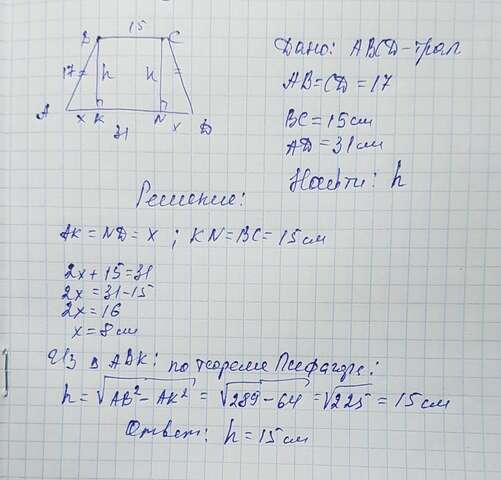 15
B C
17 h h
A x K N x D
31
Дано: ABCD-трап
AB=CD=17
BC=15см
AD=31см
Найти: h
Решение:
AK=ND=x ; KN=BC=15см
2x+15=31
2x=31-15
2x=16
x=8см
Из Δ ABK: по теореме Пифагора:
h=√AB²-AK² = √289-64 =√225 = 15см
Ответ: h=15см